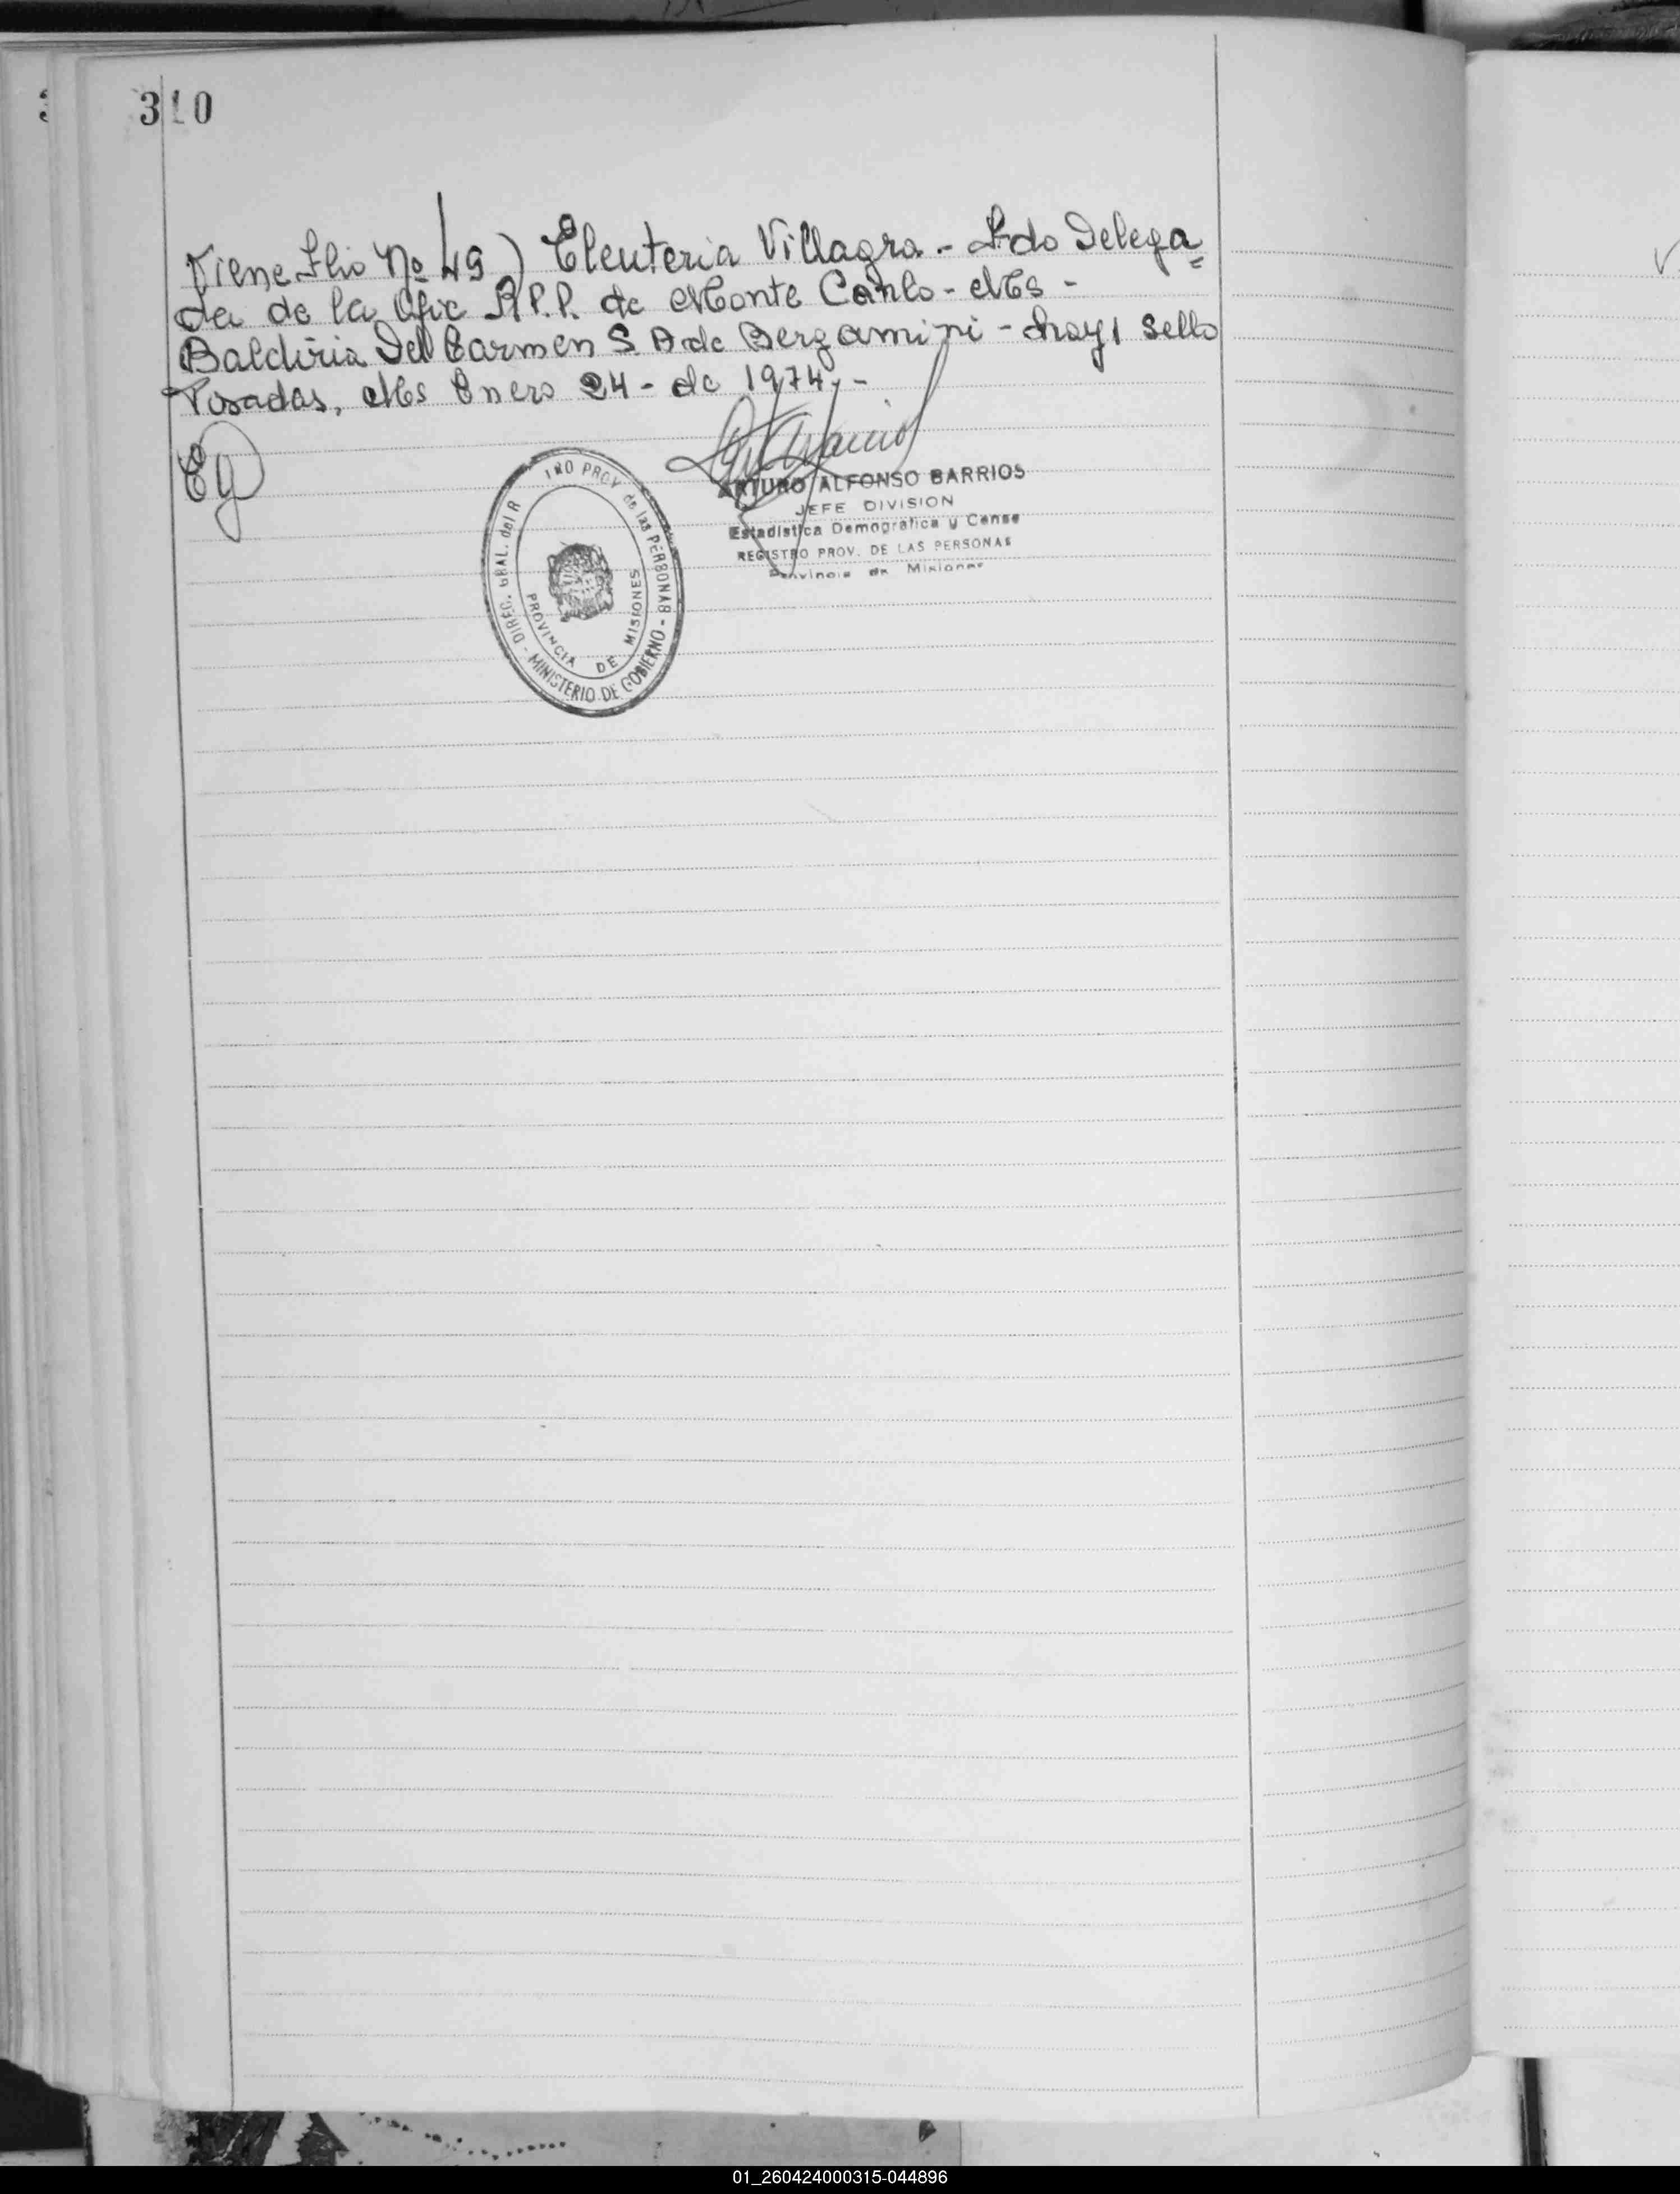 310
Viene Flio Nº 49) Eleuteria Villagra.- Fdo Delega
da de la Ofic R.P.P. de Monte Carlo - Mes -
Baldiria Del Carmen S. A de Bergamini - hay 1 sello
Posadas, Mes Enero 24 - de 1974.-
Eg
DIREC. GRAL. del R TRO PROV de las PERSONAS - MINISTERIO DE GOBIERNO -
PROVINCIA DE MISIONES
ARTURO ALFONSO BARRIOS
JEFE DIVISION
Estadistica Demografica y Censo
REGISTRO PROV. DE LAS PERSONAS
Provincia de Misiones
01_260424000315-044896